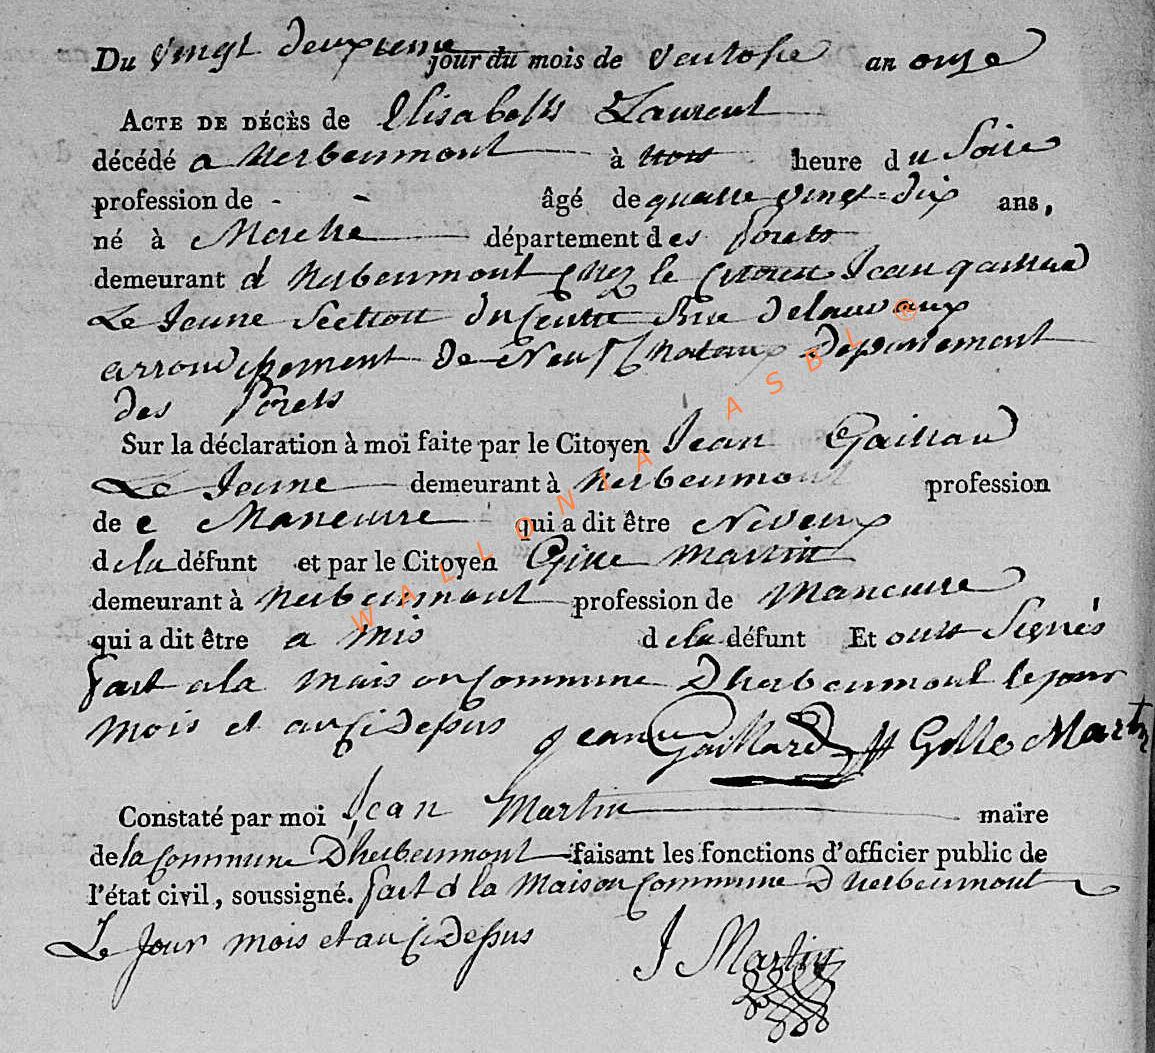 Du vingt deuxieme jour du mois de ventose an onze
ACTE DE DÉCÈS de Elisabeth Laurent
décédé a herbeumont à trois heure du Soire
profession de - âgé de quatre vingt-dix ans,
né à département des forets
demeurant a herbeumont chez le Citoien Jean gaillard
Le Jeune Section du Centre Rue delauvaux
arrondissement de Neufchateaux departement
des forets
Sur la déclaration à moi faite par le Citoyen Jean Gaillard
Le Jeune demeurant à herbeumont profession
de e Maneuvre qui a dit être Neveux
dela défunt et par le Citoyen Gille martin
demeurant à herbeumont profession de maneuvre
qui a dit être a mis dela défunt Et ont Signés
fait ala maison Commune Dherbeumont le jour
mois et an Ci Dessus Jean Gaillard Gille Martin
Constaté par moi Jean Martin maire
de la Commune Dherbeumont faisant les fonctions d'officier public de
l'état civil, soussigné. fait a la maison Commune D herbeumont
Le Jour mois et an Ci Dessus J Martin
WALLONIA ASBL ®